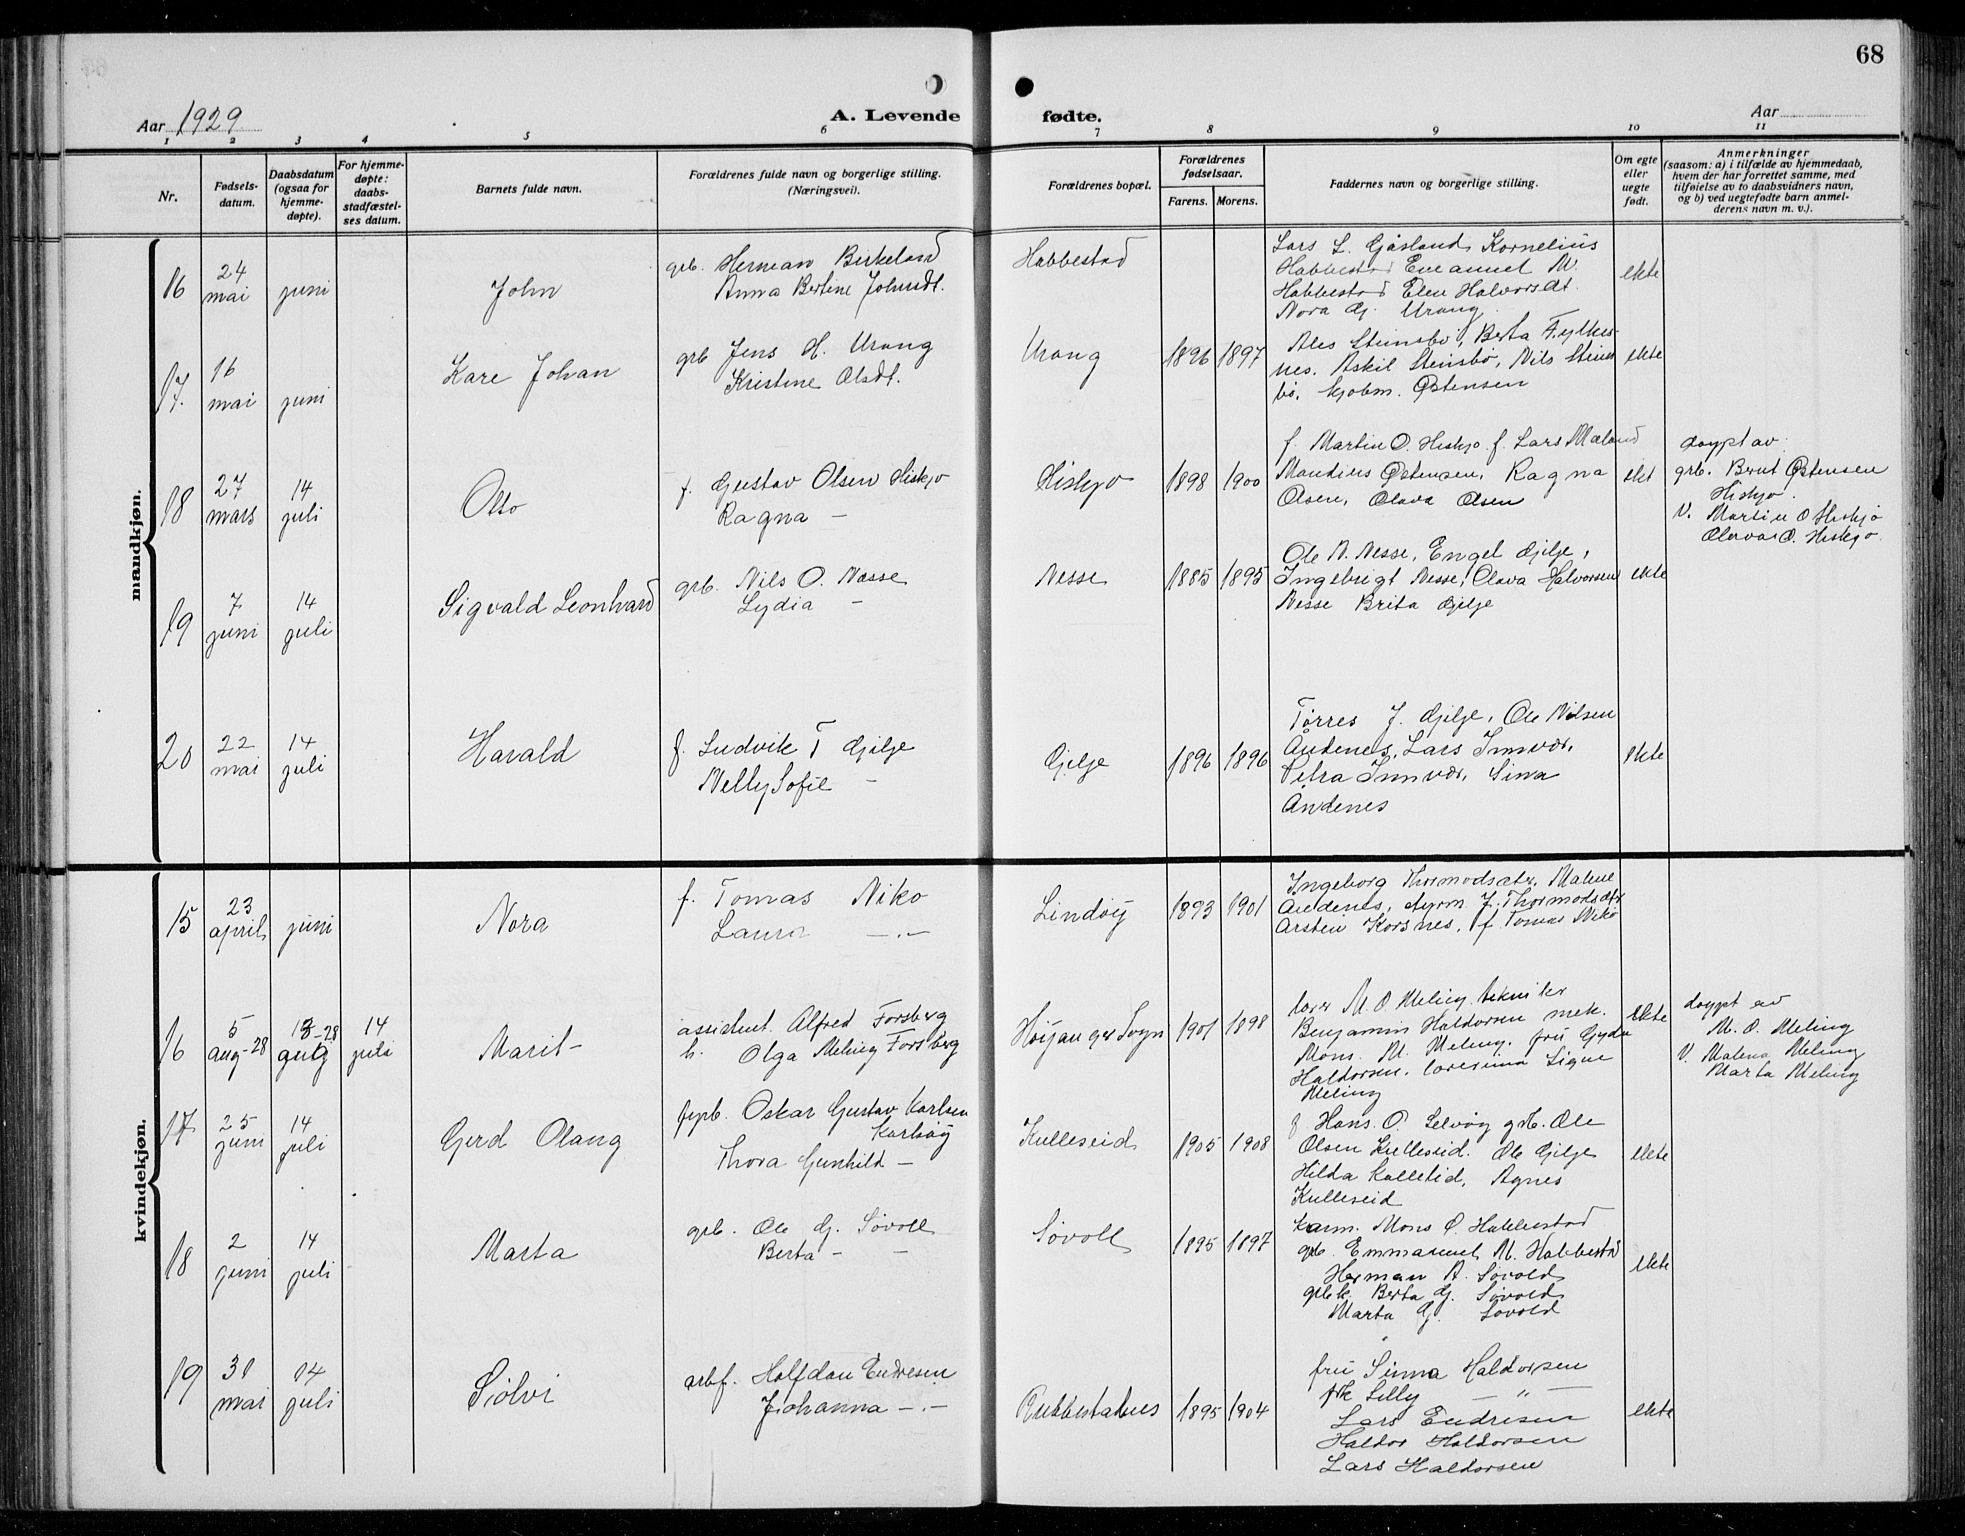 68
Aar 1929
A. Levende fødte.
Aar
1 2 3 4 5 6 7 8 9 10 11
Nr.
Fødsels-
datum.
Daabsdatum
(ogsaa for
hjemme-
døpte).
For hjemme-
døpte:
daabs-
stadfæstel-
ses datum.
Barnets fulde navn.
Forældrenes fulde navn og borgerlige stilling.
(Næringsvei).
Forældrenes bopæl.
Forældrenes
fødselsaar.
Farens. Morens.
Faddernes navn og borgerlige stilling.
Om egte
eller
uegte
født.
Anmerkninger
(saasom: a) i tilfælde av hjemmedaab,
hvem der har forrettet samme, med
tilføielse av to daabsvidners navn,
og b) ved uegtefødte barn anmel-
derens navn m. v.).
mandkjøn.
16
24
mai
juni
John
grb. Herman Birkeland
Anna Bertine Johnsdt.
Habbestad
Lars L. Gåsland, Kornelius
Habbestad Emanuel M.
Habbestad Elen Halvorsdt.
Nora Gj. Urang
ekte
17.
16
mai
juni
Kare Johan
grb Jens H. Urang
Kristine Olsdt.
Urang
1896
1897
Ales Steinsbö, Berta Fylkes-
nes. Askil Steinsbö, Nils Steins
bö. skjobm. Østensen
ekte
18
27
mars
14
juli
Otto
f. Gustav Olsen Hiskjo
Ragna —
Hiskjo
1898
1900
f. Martin O. Hiskjo f. Lars Mæland
Mandius Østensen, Ragna
Olsen, Olava Olsen
ekt
døypt av
grb. Bernt Østensen
Hiskjo.
V. Martin O Hiskjö
O. Hiskjo.
19
7
juni
14
juli
Sigvald Leonhard
grb. Nils O. Nesse
Lydia —
Nesse
1885
1895
Ole N. Nesse, Engel Gjelje,
Ingebrigt Nesse, Olava Halvorsen
Nesse Brita Gjelje
ekte
20
22
mai
14
juli
Harald
f. Ludvik T Gjelje
Nelly Sofie —
Gjelje
1896
1896
Tørres J. Gjelje, Ole Nilsen
Andenes, Lars Innvær,
Petra Innvær, Sina
Andenes
ekte
kvindekjøn.
15
23
april
juni
Nora
f. Tomas Niko
Laura —.—
Lindöy
1893
1901
Ingeborg Thormodsæter, Malene
Andenes, J. Thormodsæter
Arsten Korsnes, f. Tomas Niko
16
5
aug-28
13-28
aug
14
juli
Marit
assistent. Alfred Forsberg
h. Olga Meling Forsberg
Höyanger Sogn
1901
1898
lærer M. O. Meling. tekniker
Benjamin Haldorsen mek.
Mons. M. Meling. fru Gyda
Haldorsen. lærerinna Signe
Meling
ekte
døypt av
M. O. Meling
V. Malena Meling
Marta Meling
17
25
juni
14
juli
Gerd Olaug
fypb. Oskar Gustav Karlsen
Karlsöy
Thora Gunhild —
Kulleseid
1905
1908
f Hans. O. Selvög grb. Ole
Olsen Kulleseid. Ole Gjelje
Hilda Kolleseid, Agnes
Kulleseid
ekte
18
2
juni
14
juli
Marta
grb. Ole Gj. Sövoll
Berta — —
Sövoll
1895
1897
Mons O. Habbestad
grb. Emmanuel M. Habbestad
Herman A. Sövold
grbk. Berta Gj. Sövold
Marta Gj. Sövold
ekte
19
31
mai
14
juli
Sölvi
arbf. Halfdan Endresen
Johanna —.—
Rubbestadnes
1895
1904
fru Sinna Haldorsen
frk Lilly — " —
Lars Endresen
Haldor Haldorsen
Lars Haldorsen
ekte